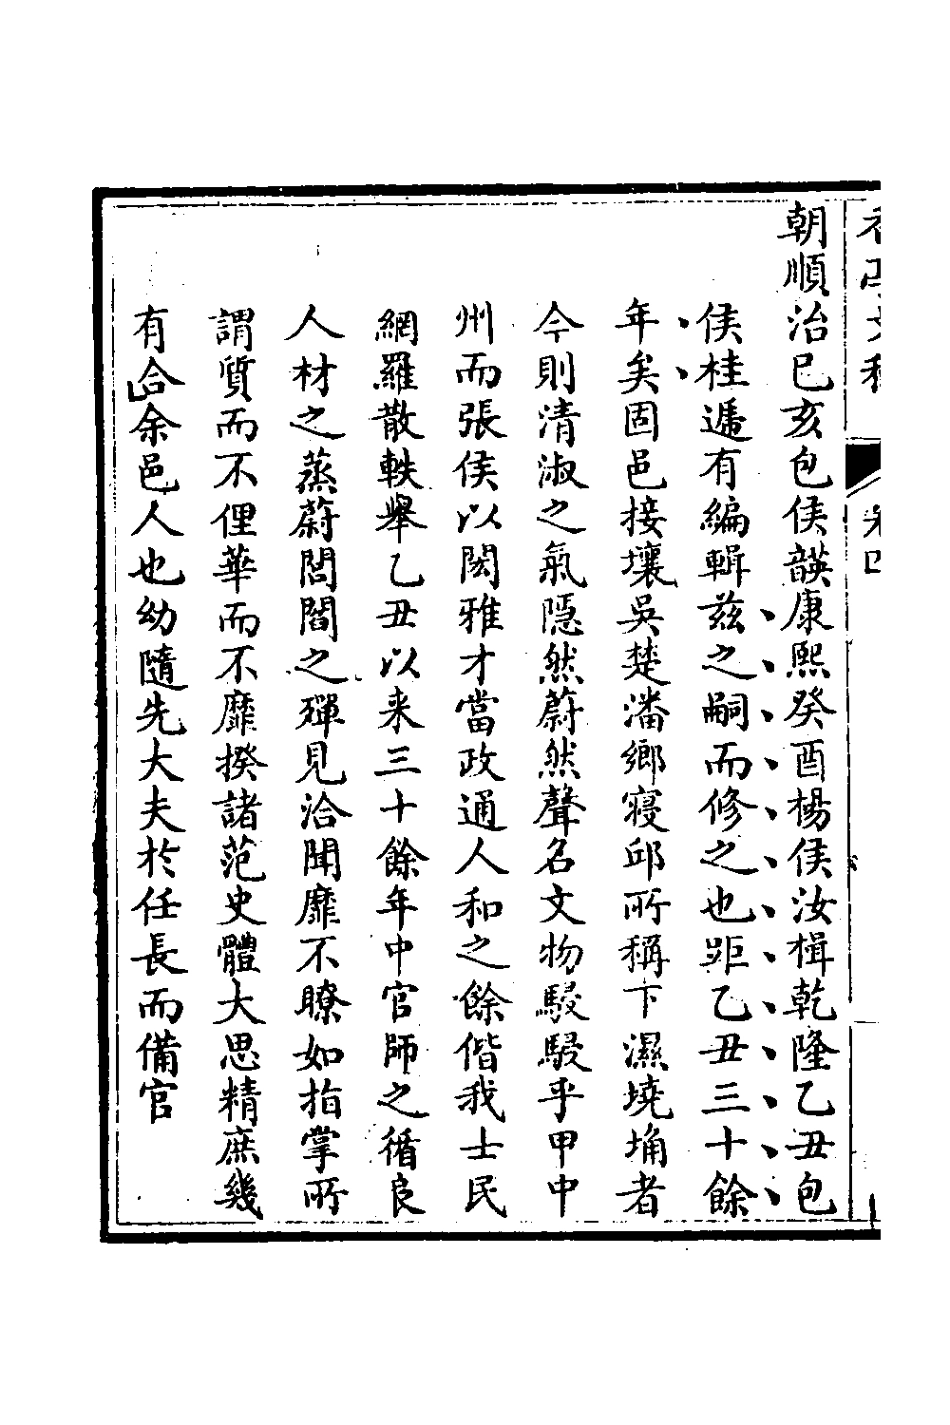 朝順治己亥包侯韺康熙癸酉楊侯汝楫乾隆乙丑包
侯桂遞有編輯兹之嗣而修之也距乙丑三十餘
年矣固邑接壤吳楚潘鄉寢邱所稱下濕墝埆者
今則清淑之氣隱然蔚然聲名文物駸駸乎甲中
州而張侯以閎雅才當政通人和之餘偕我士民
網羅散軼舉乙丑以来三十餘年中官師之循良
人材之蒸蔚閭閻之殫見洽聞靡不瞭如指掌所
謂質而不俚華而不靡揆諸范史體大思精庶幾
有合余邑人也幼隨先大夫於任長而備官